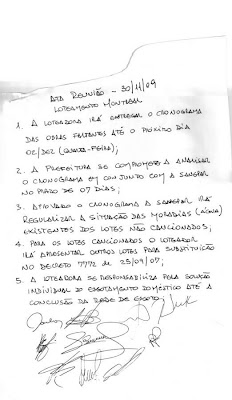 ATA REUNIÃO - 30/11/09
LOTEAMENTO MONTESAR
1. A LOTEADORA IRÁ ENTREGAR O CRONOGRAMA
DAS OBRAS FALTANTES ATÉ O PRÓXIMO DIA
02/DEZ (QUARTA-FEIRA);
2. A PREFEITURA SE COMPROMETE A ANALISAR
O CRONOGRAMA EM CONJUNTO COM A SANEPAR
NO PRAZO DE 07 DIAS;
3. APROVADO O CRONOGRAMA A SANEPAR IRÁ
REGULARIZAR A SITUAÇÃO DAS MORADIAS (ÁGUA)
EXISTENTES DOS LOTES NÃO CAUCIONADOS;
4. PARA OS LOTES CAUCIONADOS O LOTEADOR
IRÁ APRESENTAR OUTROS LOTES PARA SUBSTITUIÇÃO
NO DECRETO 7772 DE 25/09/07;
5. A LOTEADORA SE RESPONSABILIZA PELA SOLUÇÃO
INDIVIDUAL DO ESGOTAMENTO DOMÉSTICO ATÉ A
CONCLUSÃO DA REDE DE ESGOTO.